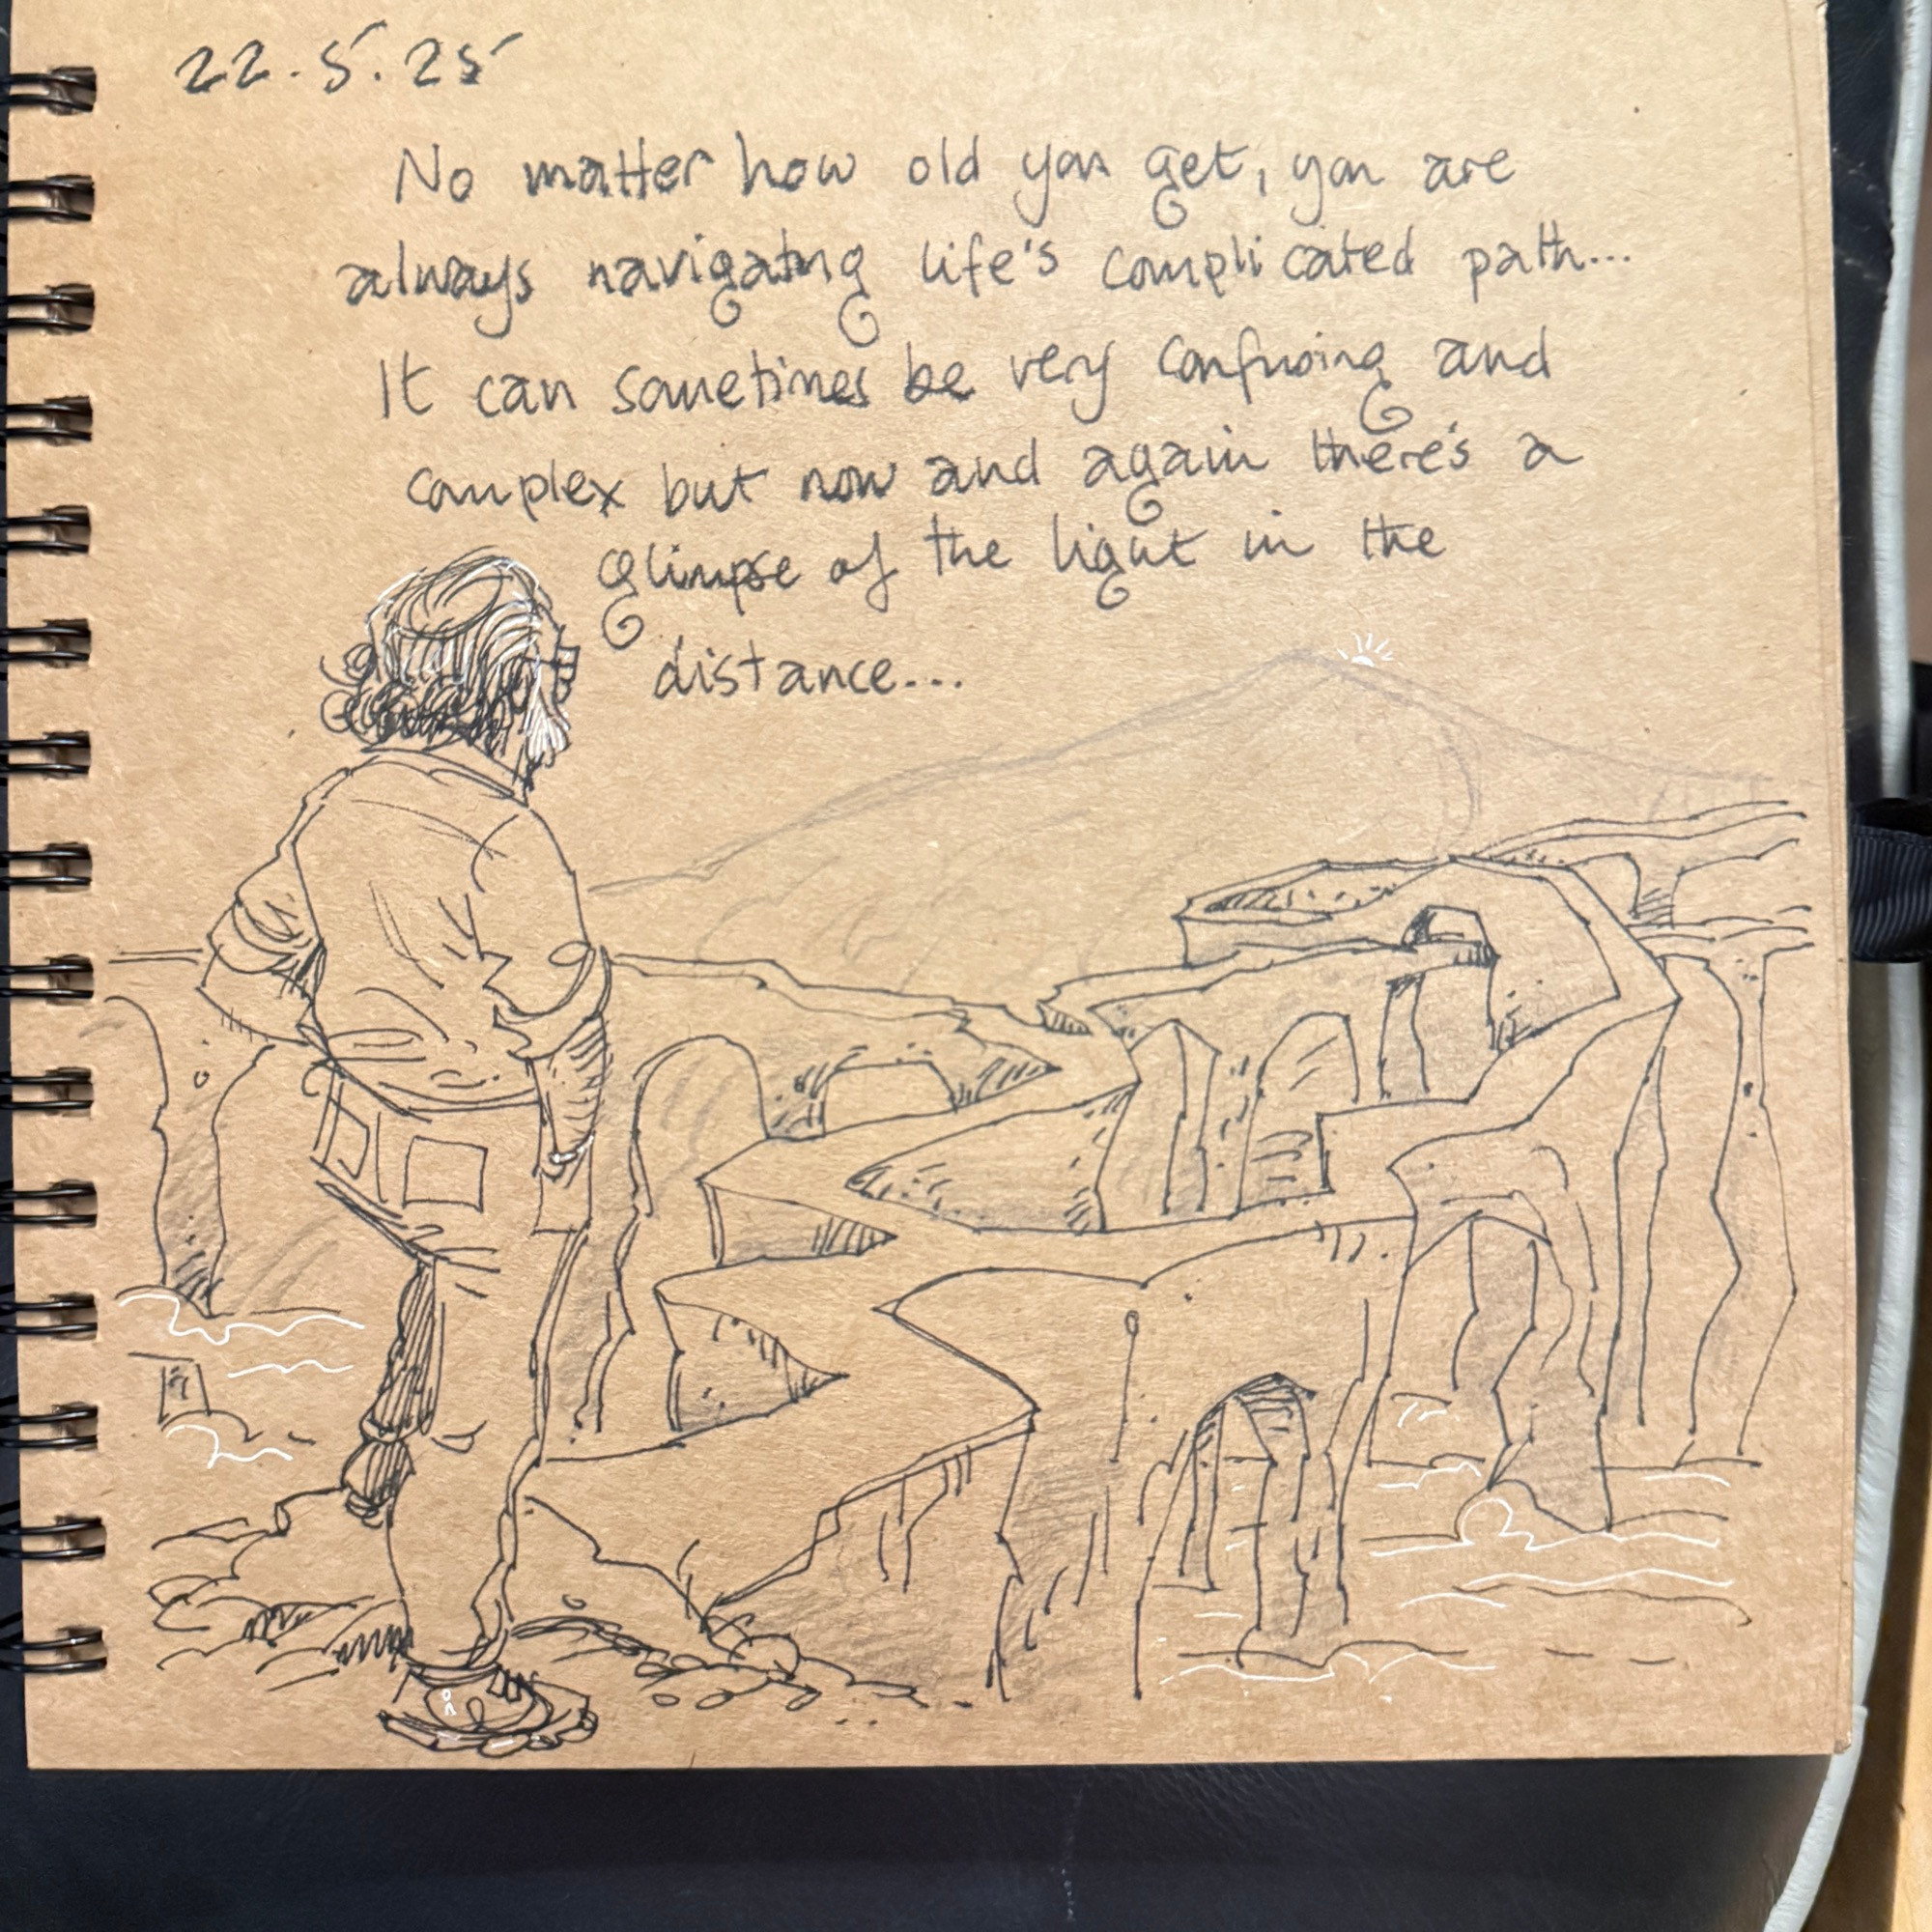 22.5.25
No matter how old you get, you are
always navigating life's complicated path...
It can sometimes be very confusing and
complex but now and again there's a
glimpse of the light in the
distance...